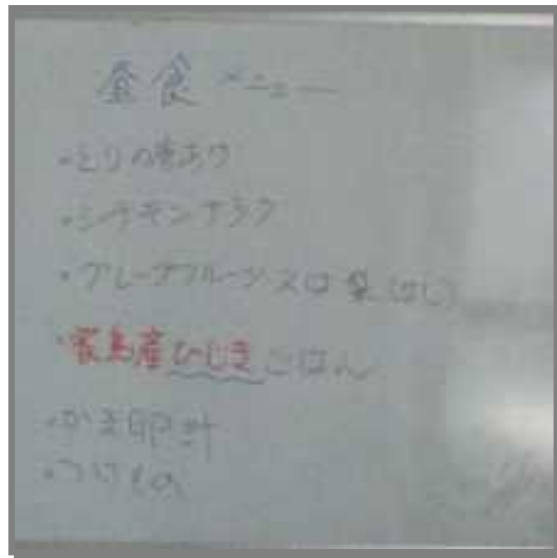 昼食メニュー
・とりの唐あげ
・シーチキンサラダ
・グレープフルーツ又は梨(なし)
・家島産ひじきごはん
・かき卵汁
・つけもの